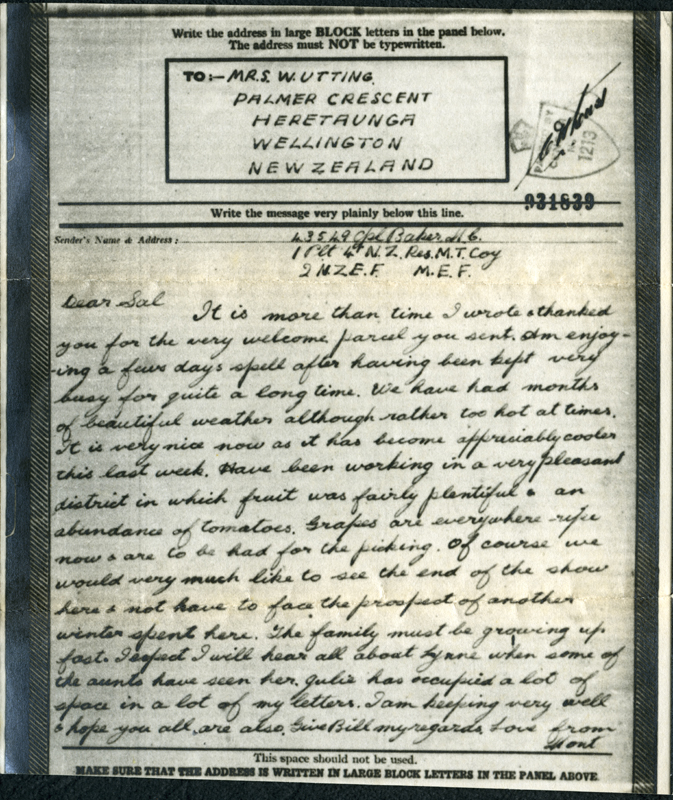 Write the address in large BLOCK letters in the panel below.
The address must NOT be typewritten.
TO:— MRS. W. UTTING.
PALMER CRESCENT
HERETAUNGA
WELLINGTON
NEW ZEALAND
1213
931839
Write the message very plainly below this line.
Sender's Name & Address: 43549 Cpl Baker. H. C.
1 Plt 4th N.Z. Res. M.T. Coy
2 N.Z.E.F. M.E.F.
Dear Sal
It is more than time I wrote & thanked
you for the very welcome parcel you sent. Am enjoy-
-ing a few days spell after having been kept very
busy for quite a long time. We have had months
of beautiful weather although rather too hot at times.
It is very nice now as it has become appriciably cooler
this last week. Have been working in a very pleasant
district in which fruit was fairly plentiful & an
abundance of tomatoes. Grapes are everywhere ripe
now & are to be had for the picking. Of course we
would very much like to see the end of the show
here & not have to face the prospect of another
winter spent here. The family must be growing up
fast. I expect I will hear all about Lynne when some of
the aunts have seen her. Julie has occupied a lot of
space in a lot of my letters. I am keeping very well
& hope you all are also. Give Bill my regards, Love from
Mont
This space should not be used.
MAKE SURE THAT THE ADDRESS IS WRITTEN IN LARGE BLOCK LETTERS IN THE PANEL ABOVE.